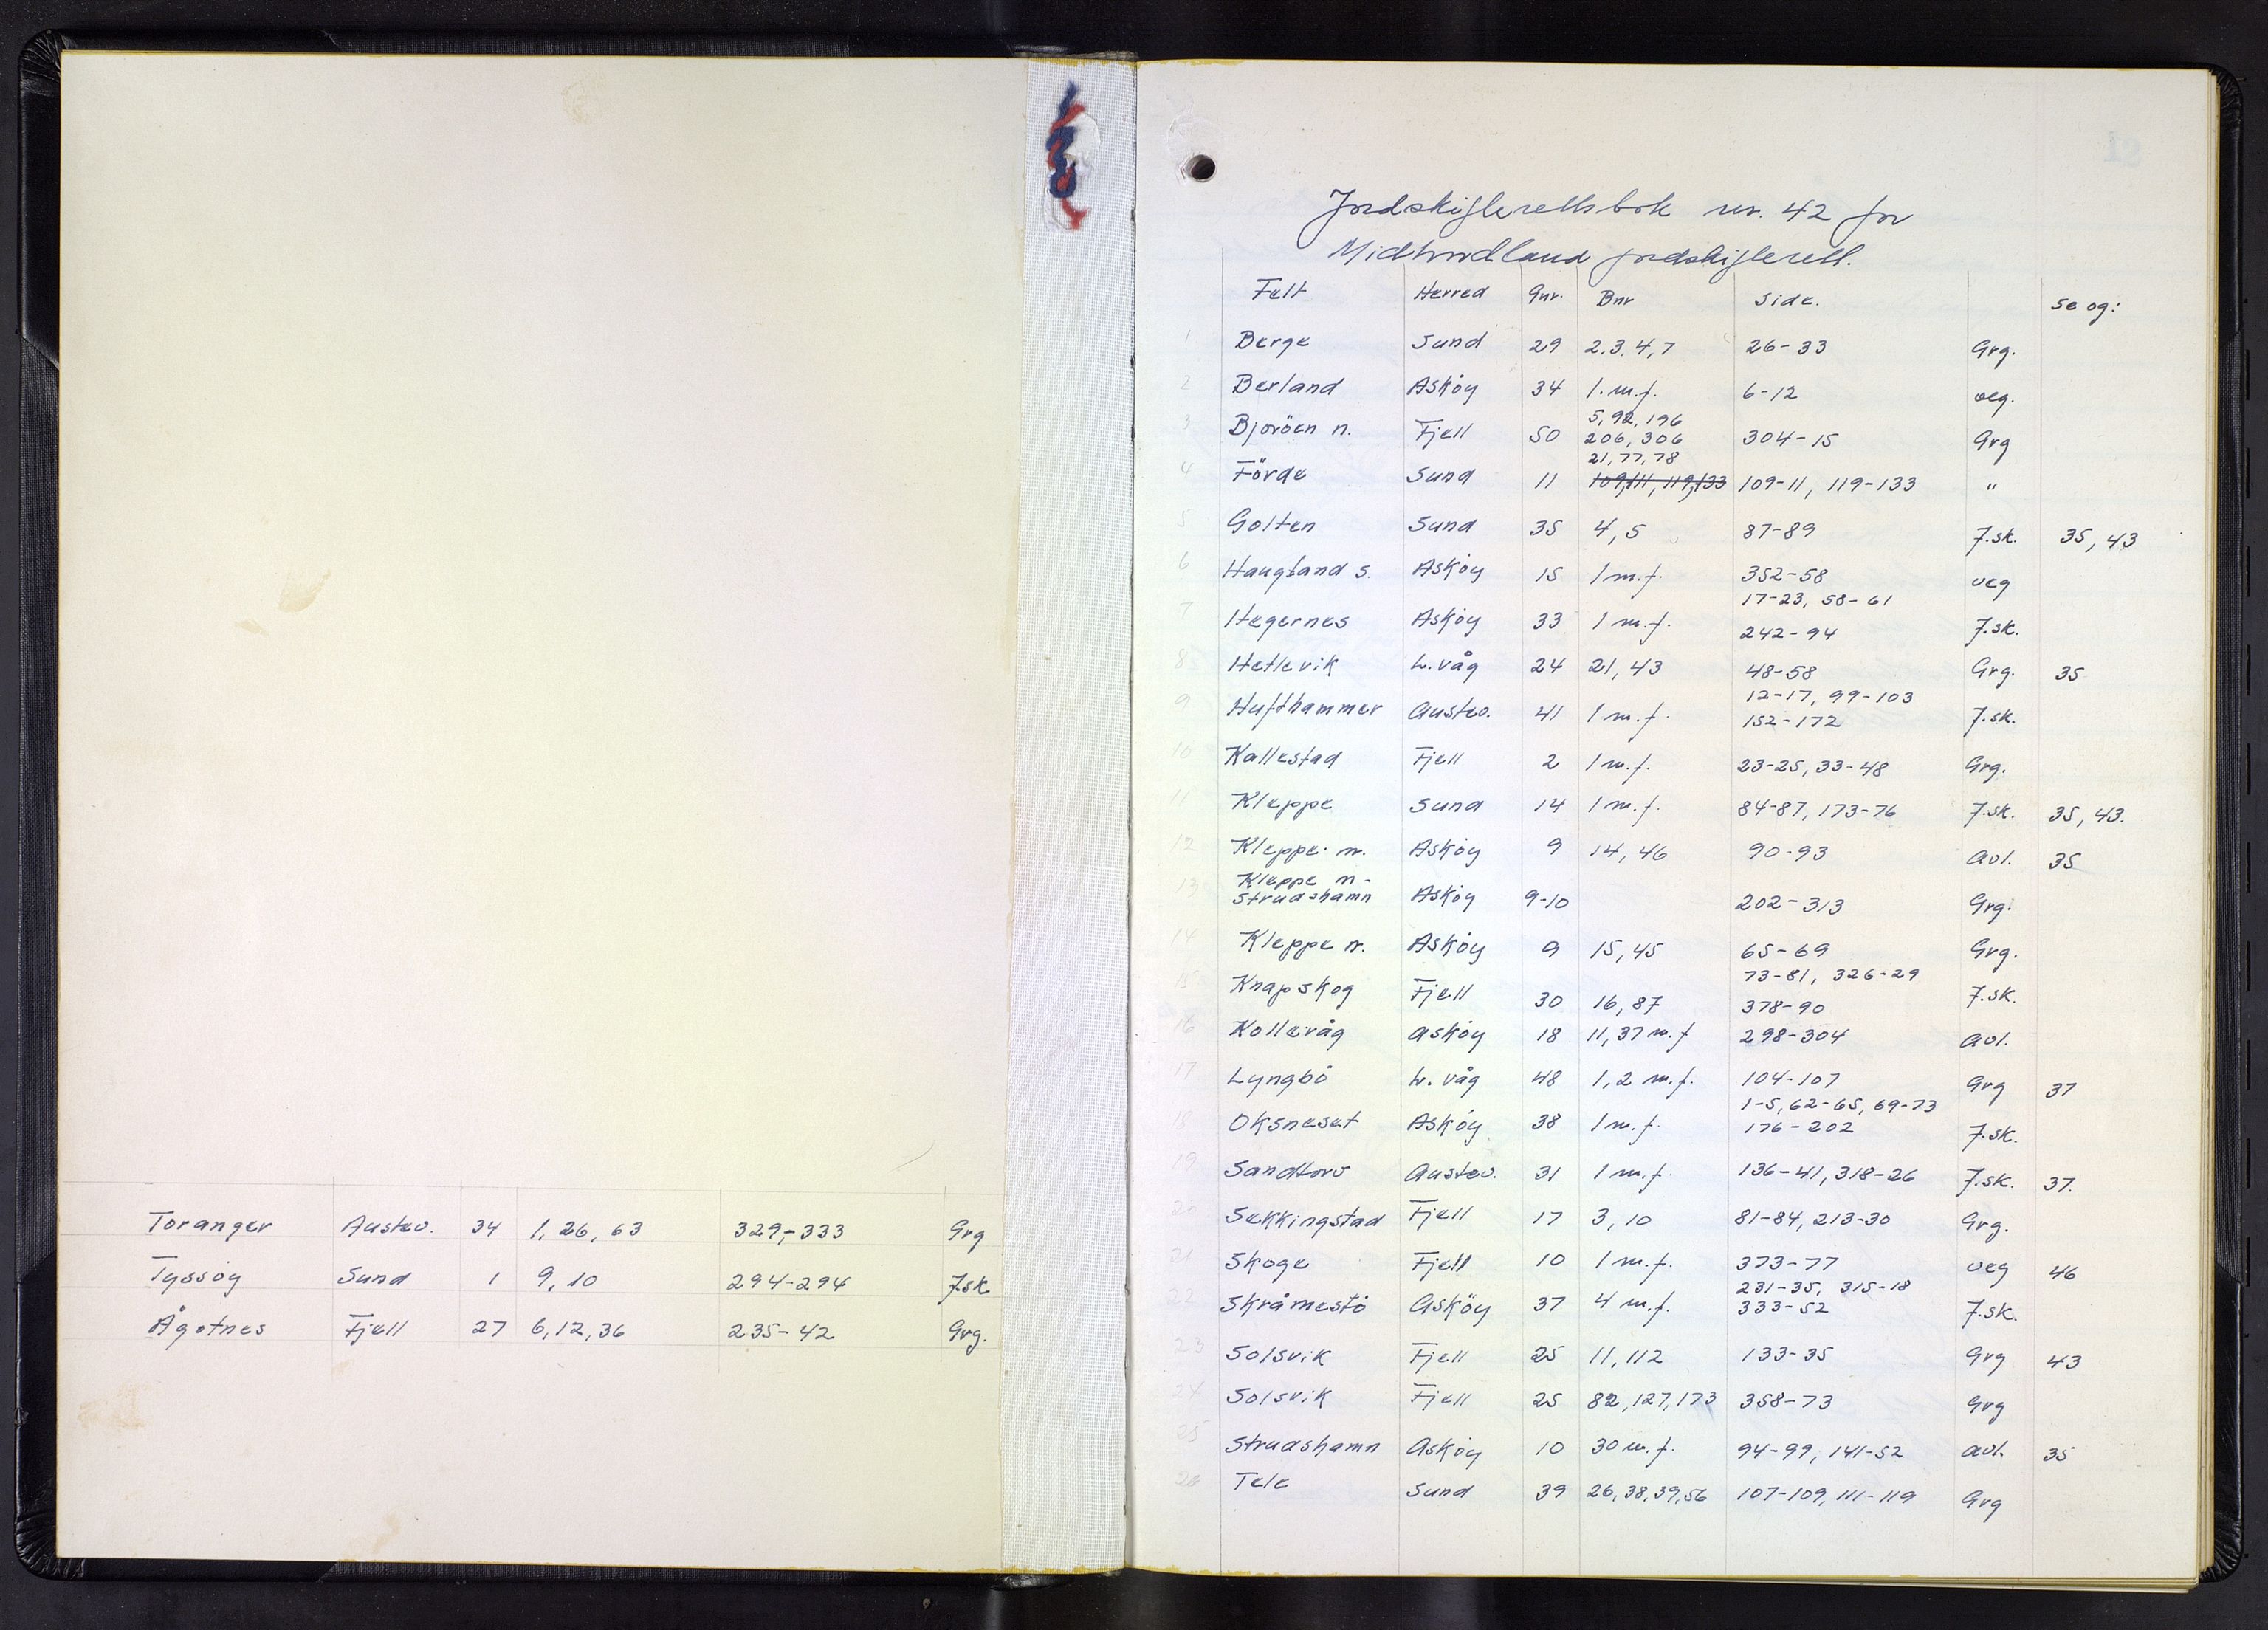 Toranger Austev. 34 1, 26, 63 329-333 Grg
Tyssöy Sund 1 9, 10 294-294 J.sk
Ågotnes Fjell 27 6, 12, 36 235-42 Grg.
Jordskifterettsbok nr. 42 for
Midhordland jordskifterett.
Felt Herred Gnr. Bnr Side. Se og:
1 Berge Sund 29 2.3.4,7 26-33 Grg.
2 Berland Asköy 34 1.m.f. 6-12 veg.
5, 92, 196
3 Bjoröen n. Fjell 50 206, 306 304-15 Grg
21, 77, 78
4 Förde Sund 11 109,111, 119,133 109-11, 119-133 "
5 Golten Sund 35 4, 5 87-89 J.sk. 35, 43
6 Haugland s. Asköy 15 1 m.f. 352-58 veg
17-23, 58-61
7 Hegernes Asköy 33 1 m.f. 242-94 J.sk.
8 Hetlevik L.våg 24 21, 43 48-58 Grg. 35
12-17, 99-103
9 Hufthammer Austev. 41 1 m.f. 152-172 J.sk.
10 Kallestad Fjell 2 1 m.f. 23-25, 33-48 Grg.
11 Kleppe Sund 14 1 m.f. 84-87, 173-76 J.sk. 35, 43.
12 Kleppe n. Asköy 9 14, 46 90-93 avl. 35
Kleppe n-
13 Strudshamn Asköy 9-10 202-313 Grg.
14 Kleppe n. Asköy 9 15, 45 65-69 Grg.
73-81, 326-29
15 Knapskog Fjell 30 16, 87 378-90 J.sk.
16 Kollevåg Asköy 18 11, 37 m.f 298-304 avl.
17 Lyngbö L.våg 48 1, 2 m.f. 104-107 Grg 37
1-5, 62-65, 69-73
18 Oksneset Asköy 38 1 m.f. 176-202 J.sk.
19 Sandtorv Austev. 31 1 m.f. 136-41, 318-26 J.sk. 37.
20 Sekkingstad Fjell 17 3, 10 81-84, 213-30 Grg.
21 Skoge Fjell 10 1 m.f. 373-77 veg 46
231-35, 315-18
22 Skråmestö Asköy 37 4 m.f. 333-52 J.sk.
23 Solsvik Fjell 25 11, 112 133-35 Grg 43
24 Solsvik Fjell 25 82, 127, 173 358-73 Grg
25 Strudshamn Asköy 10 30 m.f. 94-99, 141-52 avl. 35
26 Tele Sund 39 26, 38, 39, 56 107-109, 111-119 Grg